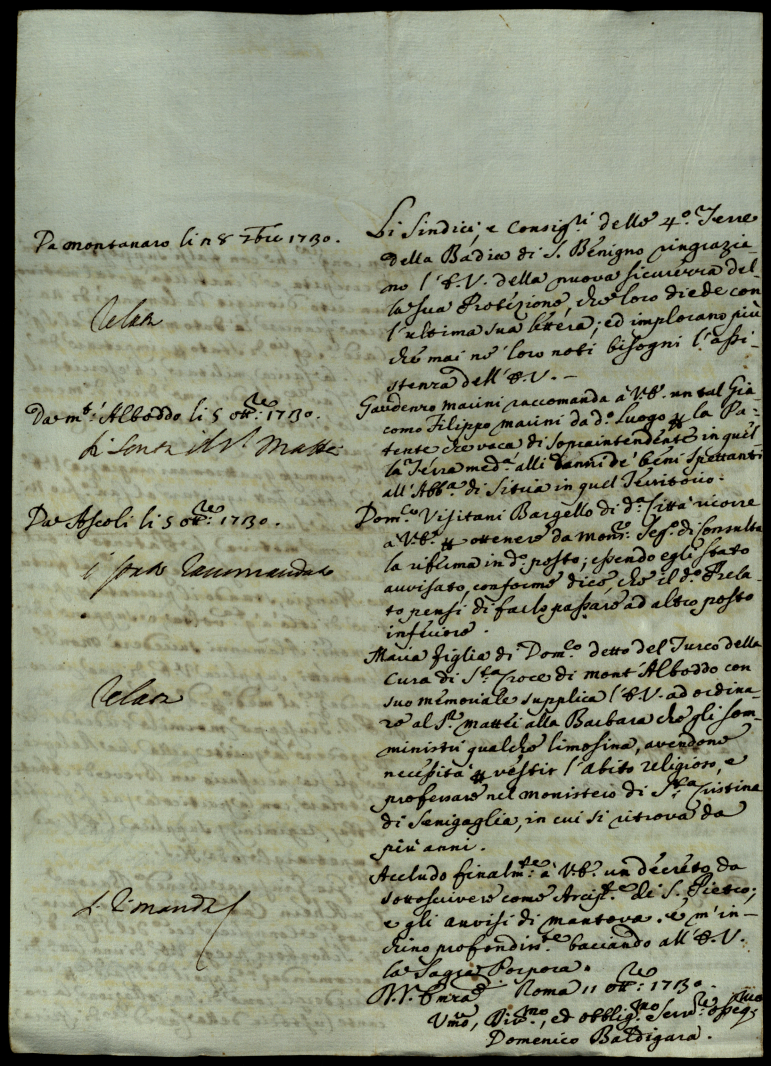 Da Montanaro li 28 7bre 1730.
Li Sindici, e Consigri delle 4o. Terre
della Badia di S. Benigno ringrazia-
no l'E.V. della nuova sicurezza del-
la sua Protezione, che loro diede con
l'ultima sua lettera; ed implorano più
che mai ne' loro noti bisogni l'assi-
stenza dell'E.V. —
Da mte. Alboddo li 5 ottre: 1730.
Gaudenzo Marini raccomanda à V.E. un tal Gia-
como Filippo Marini da do. Luogo per la Pa-
tente che vaca di Sopraintendente in quel-
la Terra meda. alli danni de' beni spettanti
all'Abba. di Sitria in quel Territorio.
Da Ascoli li 5 ottre: 1730.
Domco. Visitani Bargello di da. Città ricorre
à V.E. per ottenere da Monsre. Sego. di Consulta
la rifirma in do. posto; essendo egli stato
avvisato, conforme dice, che il do. Prela-
to pensi di farlo passare ad altro posto
inferiore.
Maria figlia di Domco. detto del Turco della
Cura di Sta. Croce di mont'Alboddo con
suo memoriale supplica l'E.V. ad ordina-
re al Sr. Mattei alla Barbara che gli som-
ministri qualche limosina, avendone
necessità per vestir l'abito religioso, e
professare nel monistero di Sta. Cristina
di Sanigaglia, in cui si ritrova da
più anni.
Accludo finalmte. à V.E. un decreto da
sottoscrivere come Arcipte. di S. Pietro;
e gli avvisi di Mantova. e m'in-
chino profondisste. bacciando all'E.V.
la Sagra Porpora.
Roma 11 ottre: 1730.
Vmo, Divmo, ed obbligmo Servre osseqmo
Domenico Baldigara.